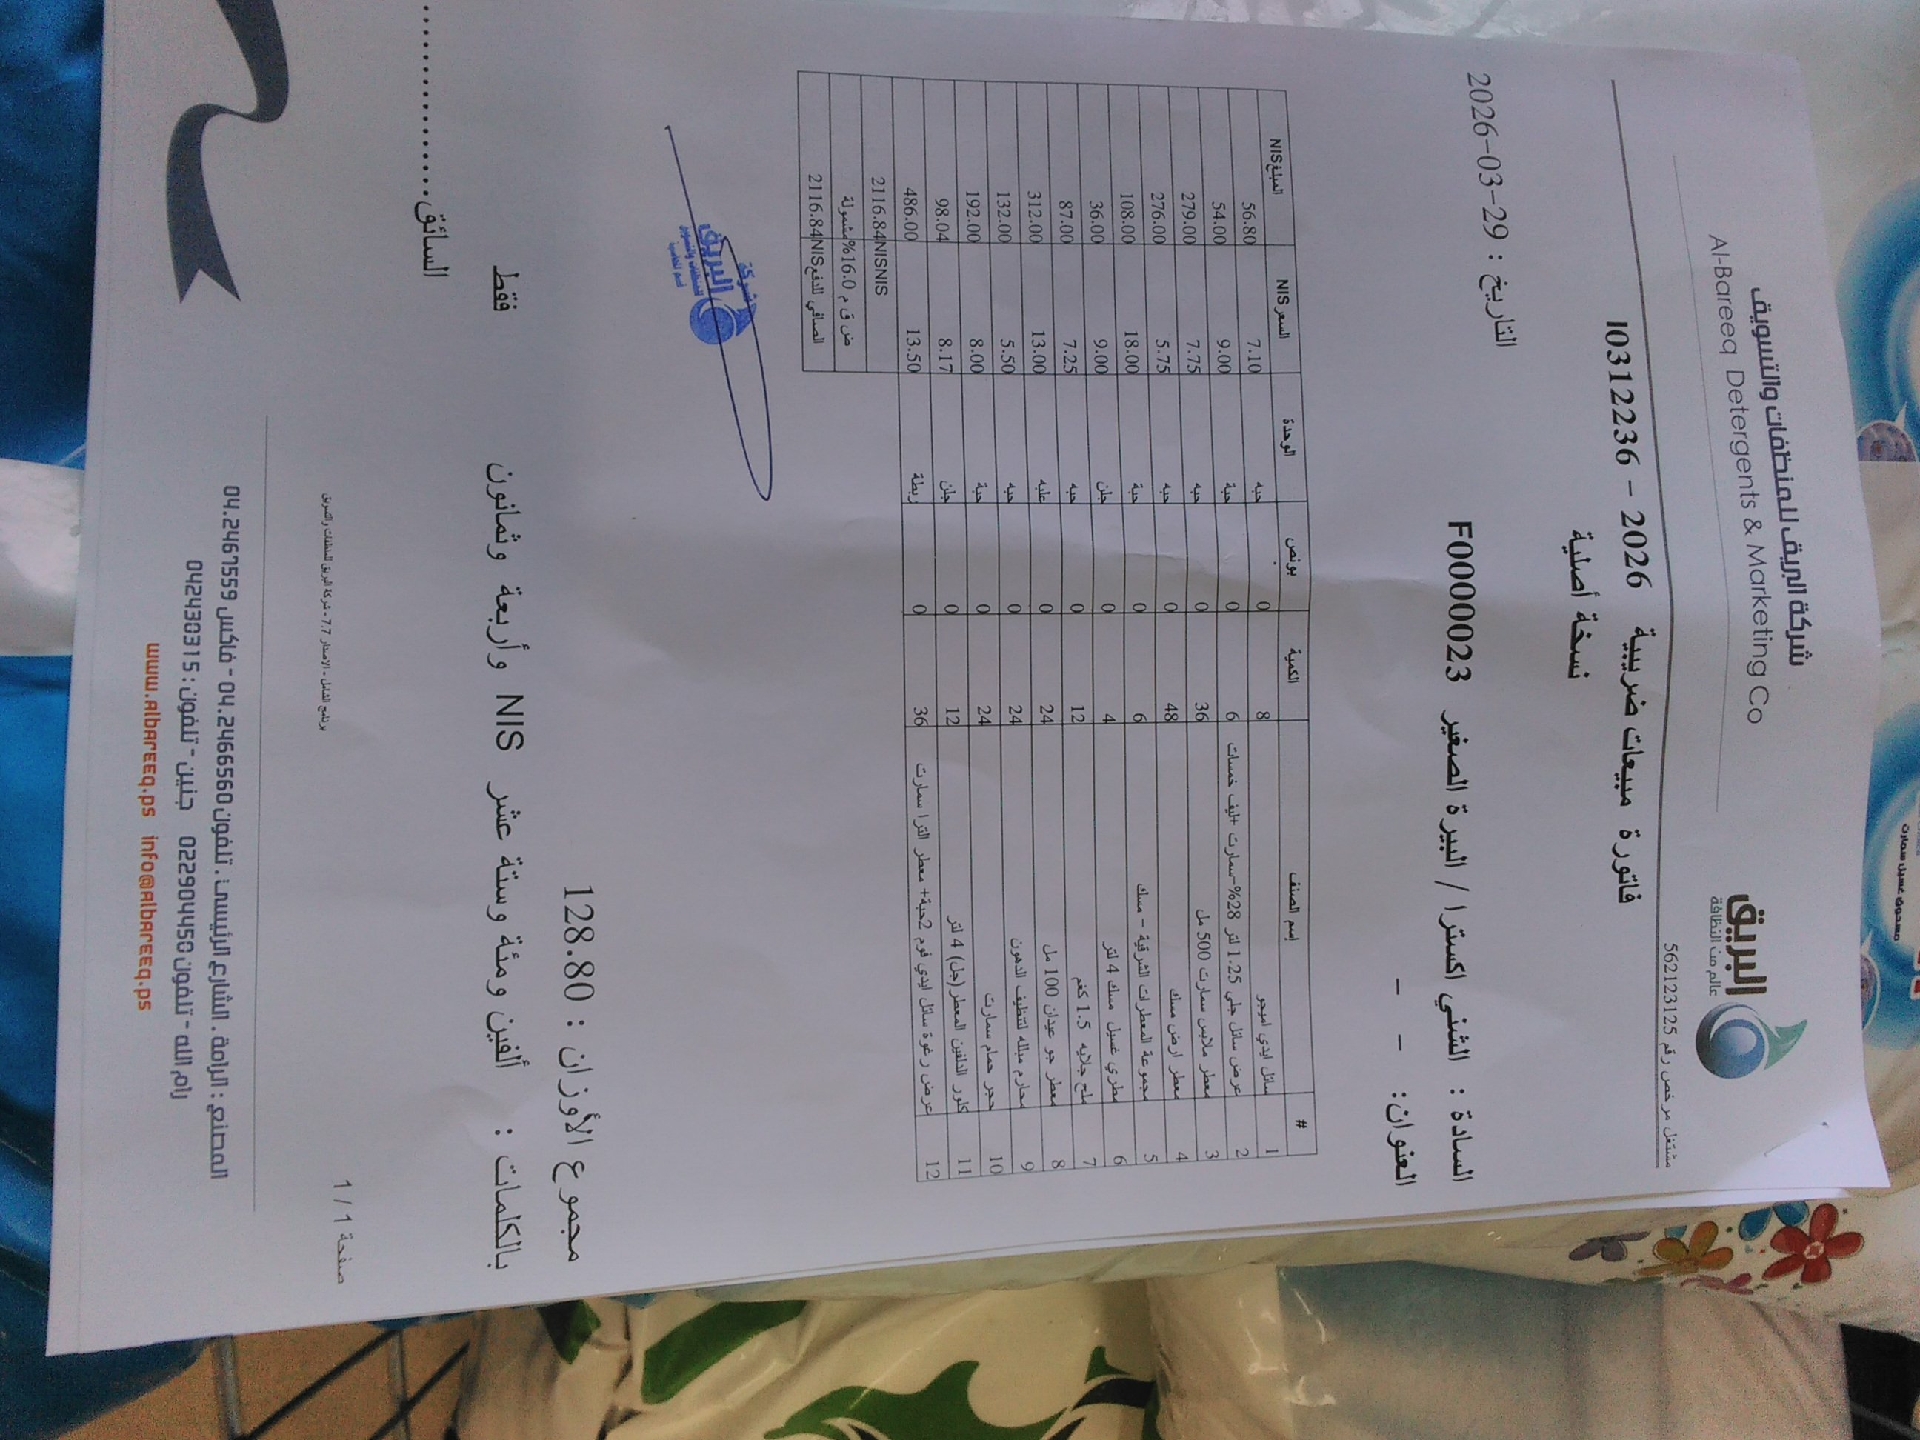 شركة البريق للمنظفات والتسويق
Al-Bareeq Detergents & Marketing Co
البريق
عالم من النظافة
مشتغل مرخص رقم 562123125
فاتورة مبيعات ضريبية I0312236 - 2026
نسخة أصلية
التاريخ : 2026-03-29
السادة : الشني اكسترا / البيرة الصغير F0000023
العنوان: - -
# إسم الصنف الكمية بونص الوحدة السعر NIS المبلغ NIS
1 سائل ايدي اميجو 8 0 حبه 7.10 56.80
2 عرض سائل جلي 1.25 لتر 28%-سمارت +ليف خمسات 6 0 حبة 9.00 54.00
3 معطر ملابس سمارت 500 مل 36 0 حبه 7.75 279.00
4 معطر ارض مسك 48 0 حبه 5.75 276.00
5 مجموعة المعطرات الشرقية - مسك 6 0 حبة 18.00 108.00
6 مطري غسيل مسك 4 لتر 4 0 جلن 9.00 36.00
7 ملح جلايه 1.5 كغم 12 0 حبه 7.25 87.00
8 معطر جو عيدان 100 مل 24 0 علبه 13.00 312.00
9 محارم مبلله لتنظيف الدهون 24 0 حبه 5.50 132.00
10 حجر حمام سمارت 24 0 حبة 8.00 192.00
11 كلور التلفين المعطر (جل) 4 لتر 12 0 جلن 8.17 98.04
12 عرض رغوة سائل ايدي فوم 2حبة+ معطر الترا سمارت 36 0 ربطة 13.50 486.00
2116.84NISNIS
ض ق م 16.0% مشمولة
الصافي للدفع 2116.84NIS
شركة
البريق
للمنظفات والتسويق
مجموع الأوزان : 128.80
بالكلمات : ألفين ومئة وستة عشر NIS وأربعة وثمانون فقط
السائق..............
صفحة 1 / 1
برنامج الشامل - الاصدار 7.7 - شركة البريق للمنظفات والتسويق
المصنع : الرامة . الشارع الرئيسي . تلفون 04.2466560 - فاكس 04.2467559
رام الله - تلفون 022904450 جنين - تلفون : 042430315
www.Albareeq.ps info@Albareeq.ps
مسحوق غسيل سمارت